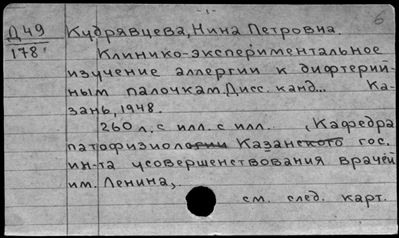 -1-
6
Д49
178
Кудрявцева, Нина Петровна.
Клинико-экспериментальное
изучение аллергии к дифтерий-
ным палочкам. Дисс. канд... Ка-
зань, 1948.
260 л. с илл. с илл. , Кафедра
патофизиологии Казанского гос.
ин-та усовершенствования врачей
им. Ленина,.
см. след. карт.